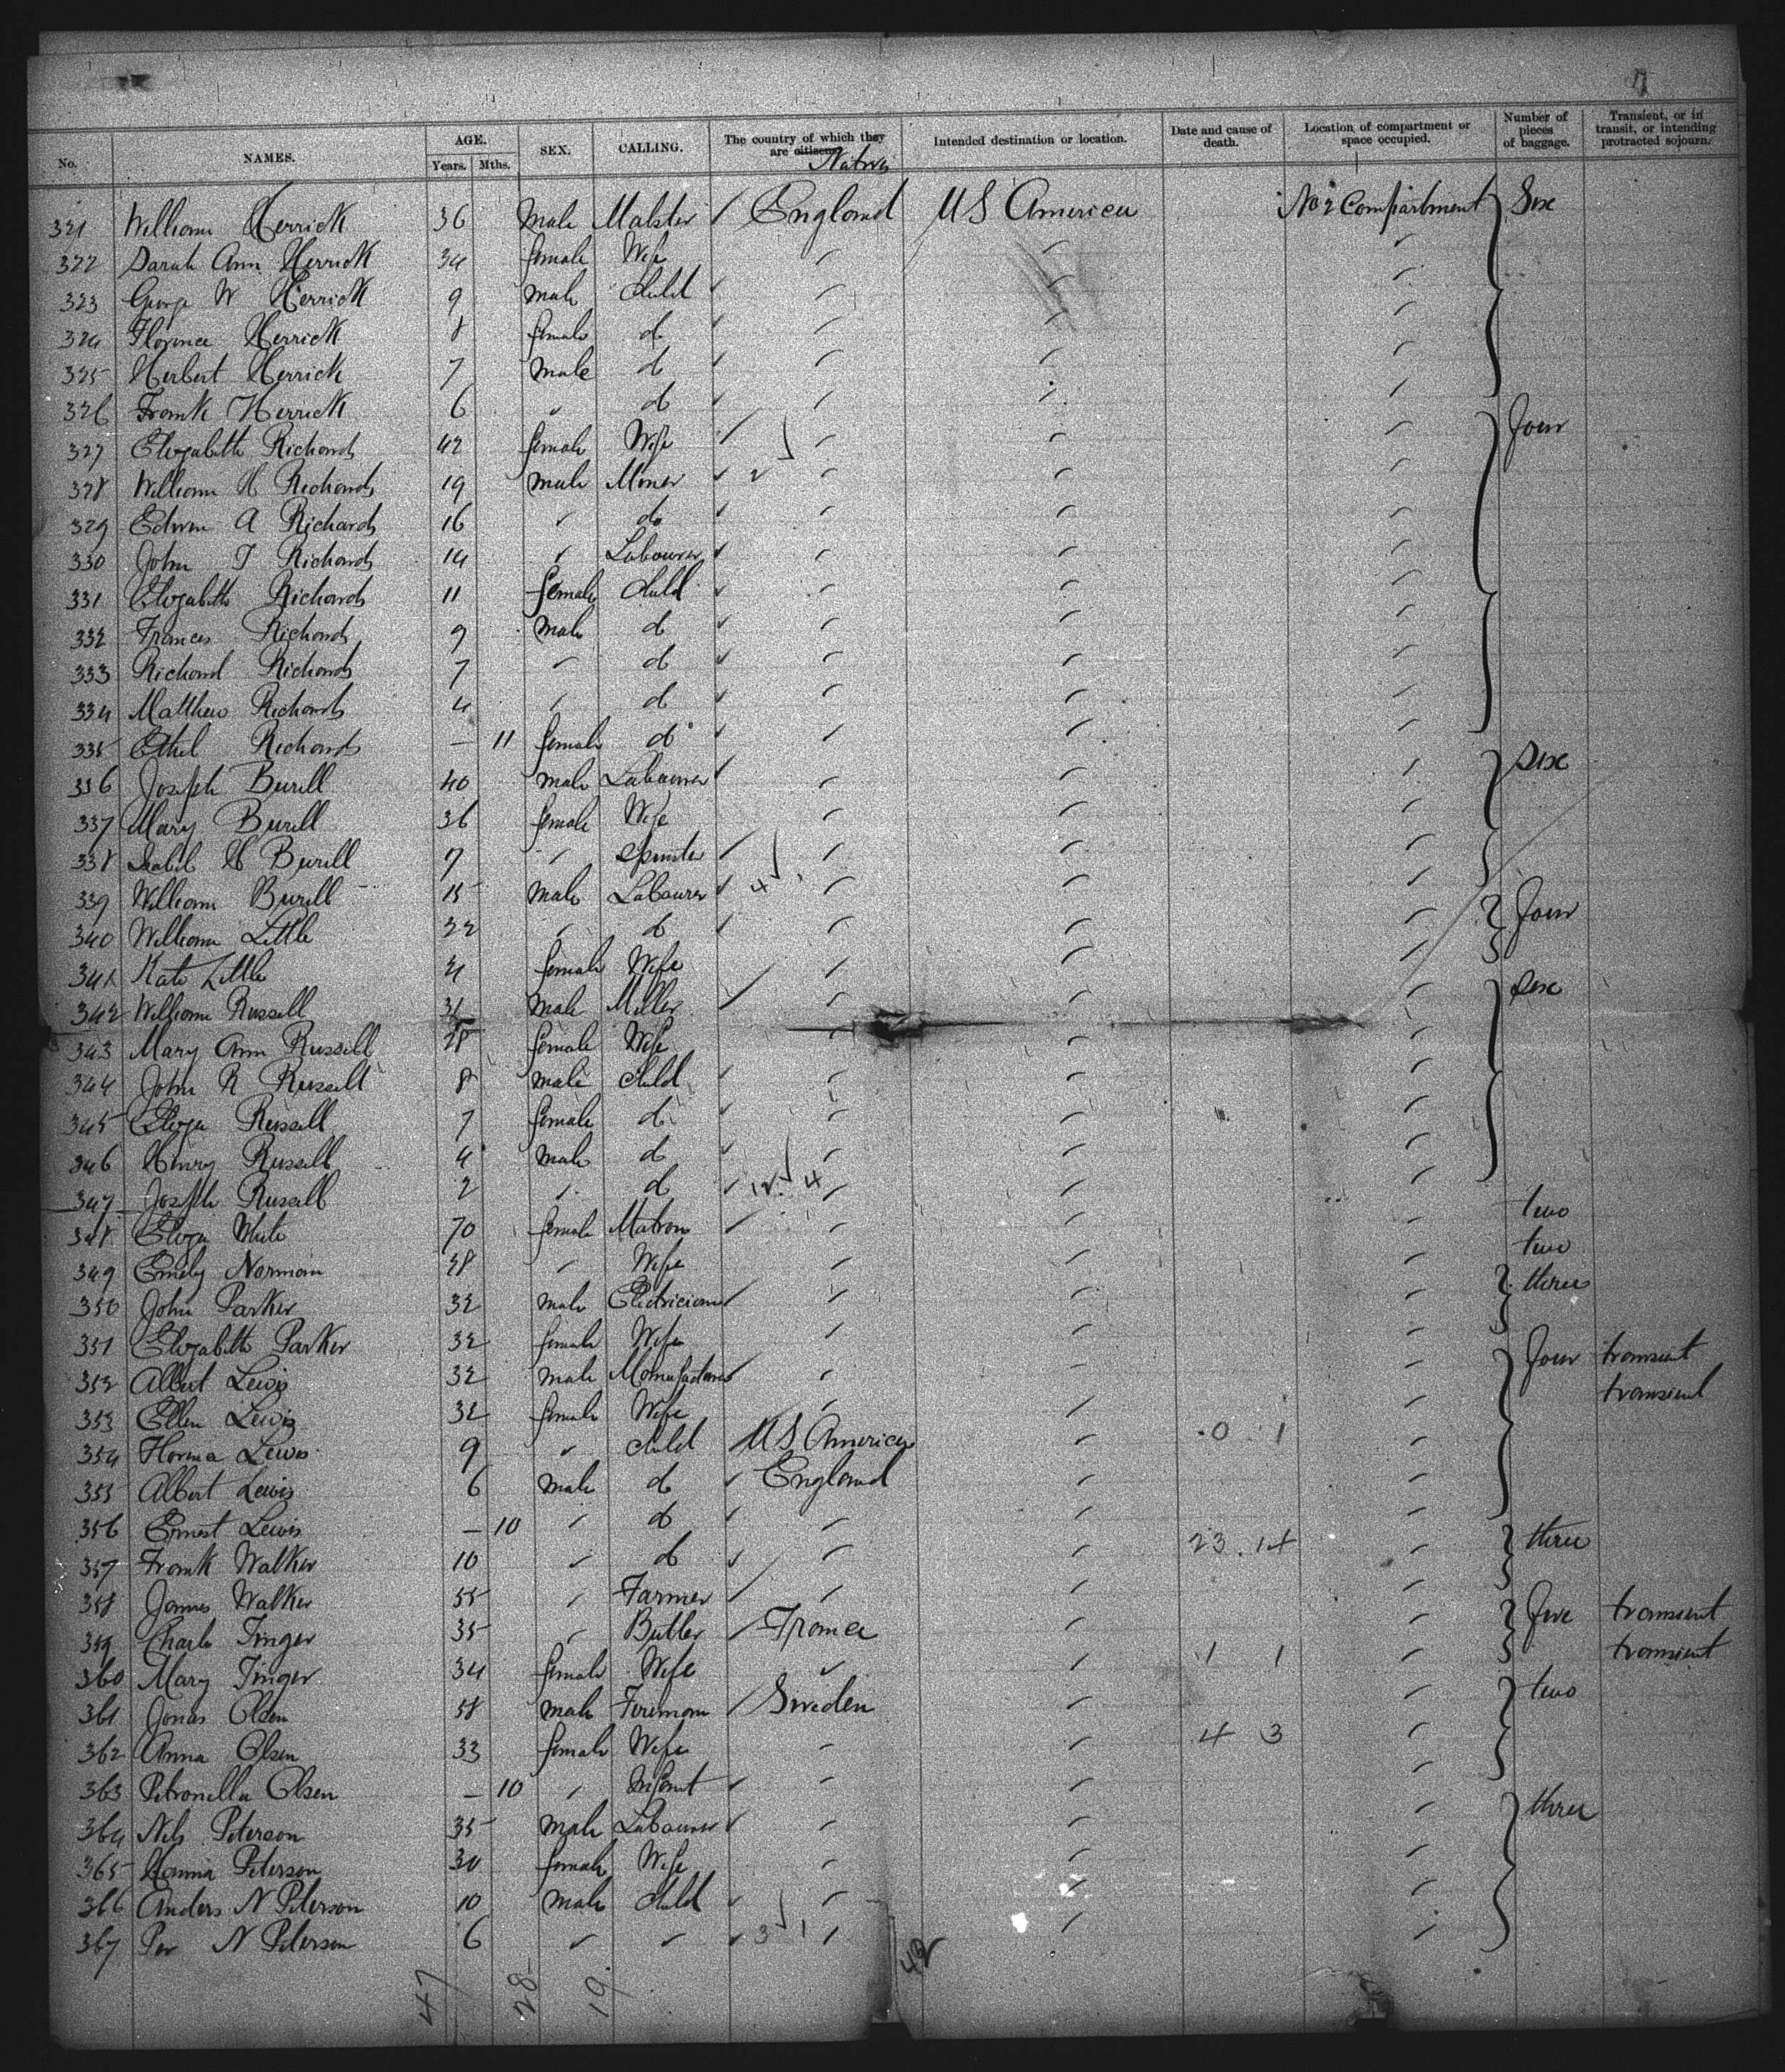 No. NAMES. AGE. Years. Mths. SEX. CALLING. The country of which they are citizens. Natives Intended destination or location. Date and cause of death. Location of compartment or space occupied. Number of pieces of baggage. Transient, or in transit, or intending protracted sojourn.
321 William Herrick 36 male Malster ✓ England US America No 2 Compartment Six
322 Sarah Ann Herrick 34 female Wife
323 George W Herrick 9 male Child ✓
324 Florence Herrick 8 female do ✓
325 Herbert Herrick 7 male do ✓
326 Frank Herrick 6 " do ✓
327 Elizabeth Richards 42 female Wife ✓ Four
328 William H Richards 19 male Miner ✓ 2
329 Edwin A Richards 16 " do ✓
330 John J Richards 14 " Labourer ✓
331 Elizabeth Richards 11 female Child ✓
332 Frances Richards 9 male do ✓
333 Richard Richards 7 " do ✓
334 Matthew Richards 4 " do ✓
335 Ethel Richards – 11 female do ✓
336 Joseph Burill 40 male Labourer ✓ Six
337 Mary Burill 36 female Wife
338 Isabel H Burill " Spinster ✓
339 William Burill 15 male Labourer ✓ 4
340 William Little 22 " do ✓ Four
341 Kate Little 21 female Wife
342 William Russell 31 male Miller ✓ Six
343 Mary Ann Russell 28 female Wife
344 John R Russell 8 male Child ✓
345 Eliza Russell 7 female do ✓
346 Henry Russell 4 male do ✓
347 Joseph Russell 2 " do ✓ 12 4
348 Eliza White 70 female Matron ✓ two
349 Emily Norman 28 " Wife two
350 John Parker 32 male Electrician ✓ three
351 Elizabeth Parker 32 female Wife
352 Albert Lewis 32 male Manufacturer ✓ Four transient
353 Ellen Lewis 32 female Wife transient
354 Lewis 9 " Child ✓ US America 0 1
355 Albert Lewis 6 male do ✓ England
356 Ernest Lewis – 10 " do ✓
357 Frank Walker 10 " do ✓ 23 14 three
358 James Walker 55 " Farmer ✓
359 Charle Tinger 35 " Butler ✓ France five transient
360 Mary Tinger 34 female Wife 1 1 transient
361 Jonas Olsen 58 male Fireman ✓ Sweden two
362 Anna Olsen 33 female Wife 4 3
363 Petronella Olsen – 10 " Infant ✓
364 Nels Peterson 35 male Labourer ✓ three
365 Hanna Peterson 30 female Wife
366 Anders N Peterson 10 male Child ✓
367 Per N Peterson 6 " " ✓ 3 1
47 28 19 42